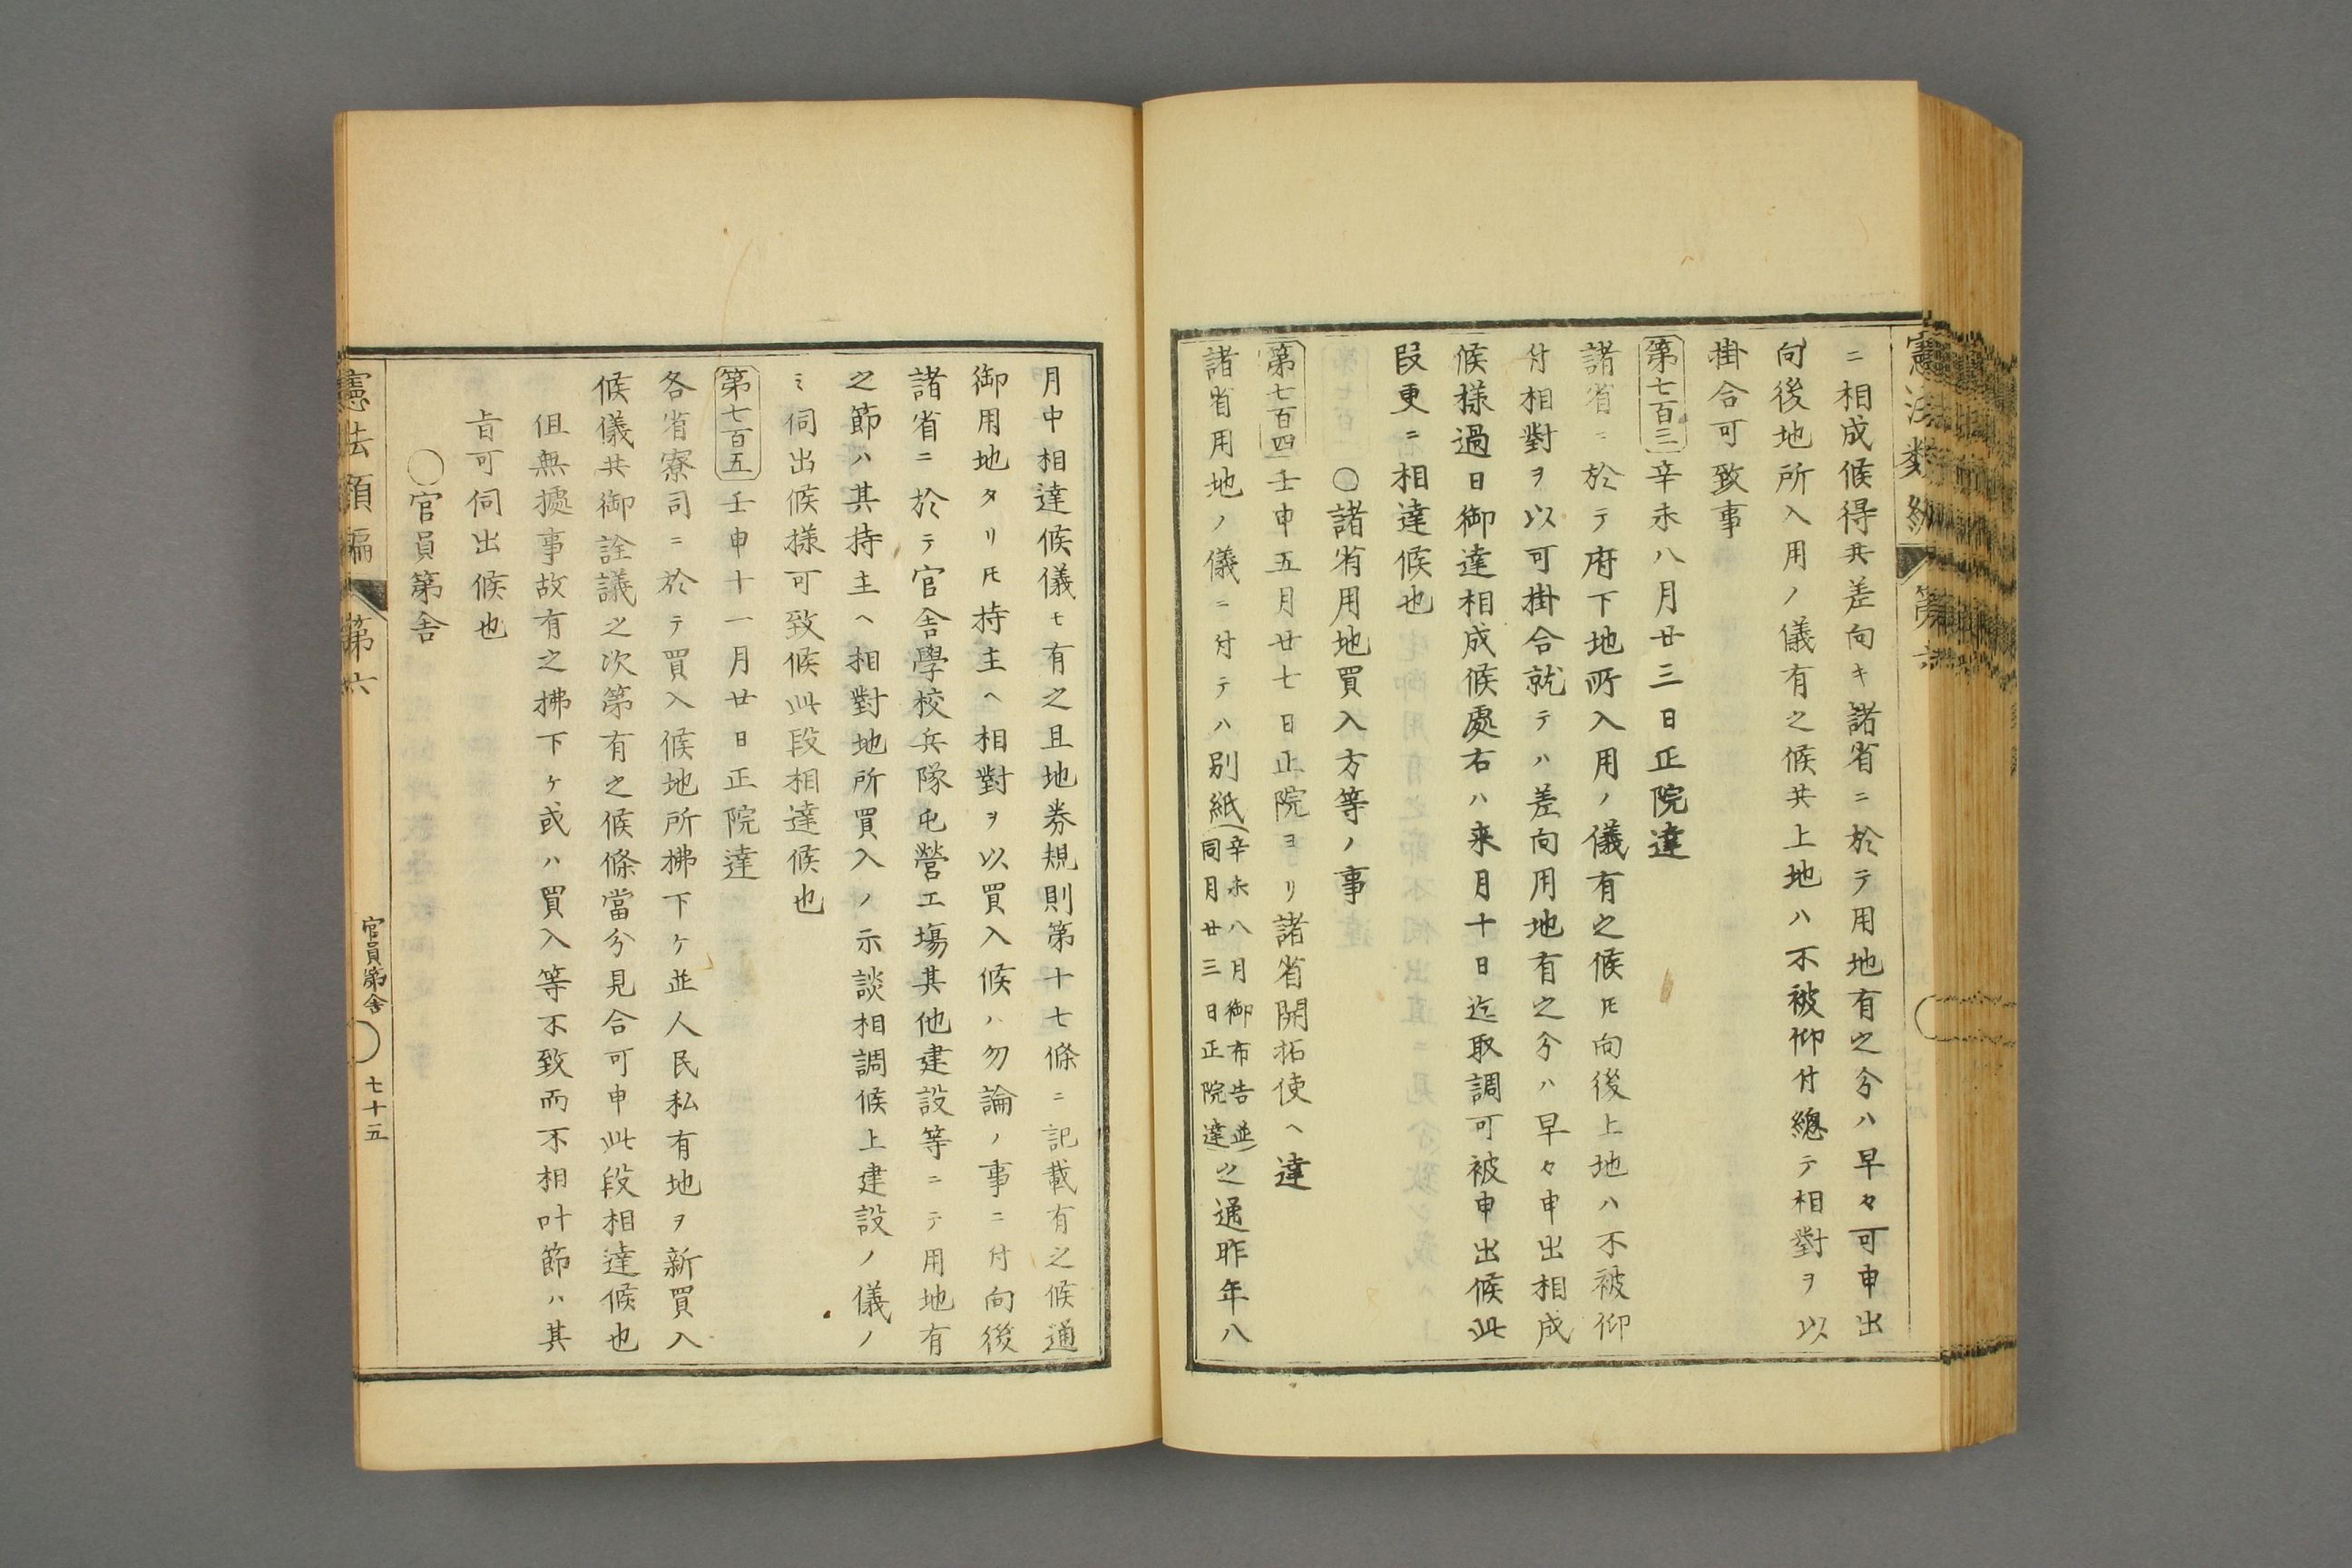 ニ相成候得共差向キ諸省ニ於テ用地有之分ハ早々可申出
向後地所入用ノ儀有之候共上地ハ不被仰付總テ相對ヲ以
掛合可致事
第七百三 辛未八月廿三日正院達
諸省ニ於テ府下地所入用ノ儀有之候𪜈向後上地ハ不被仰
付相對ヲ以可掛合就テハ差向用地有之分ハ早々申出相成
候様過日御達相成候處右ハ来月十日迄取調可被申出候此
段更ニ相達候也
〇諸省用地買入方等ノ事
第七百四 壬申五月廿七日正院ヨリ諸省開拓使ヘ達
諸省用地ノ儀ニ付テハ別紙(辛未八月御布告並同月廿三日正院達)之通昨年八
月中相達候儀モ有之且地券規則第十七條ニ記載有之候通
御用地タリ𪜈持主ヘ相對ヲ以買入候ハ勿論ノ事ニ付向後
諸省ニ於テ官舎學校兵隊屯營工塲其他建設等ニテ用地有
之節ハ其持主ヘ相對地所買入ノ示談相調候上建設ノ儀ノ
ミ伺出候様可致候此段相達候也
第七百五 壬申十一月廿日正院達
各省寮司ニ於テ買入候地所拂下ケ並人民私有地ヲ新買入
候儀共御詮議之次第有之候條當分見合可申此段相達候也
但無據事故有之拂下ケ或ハ買入等不致而不相叶節ハ其
旨可伺出候也
〇官員第舎
憲法類編 第六 官員第舎 七十五